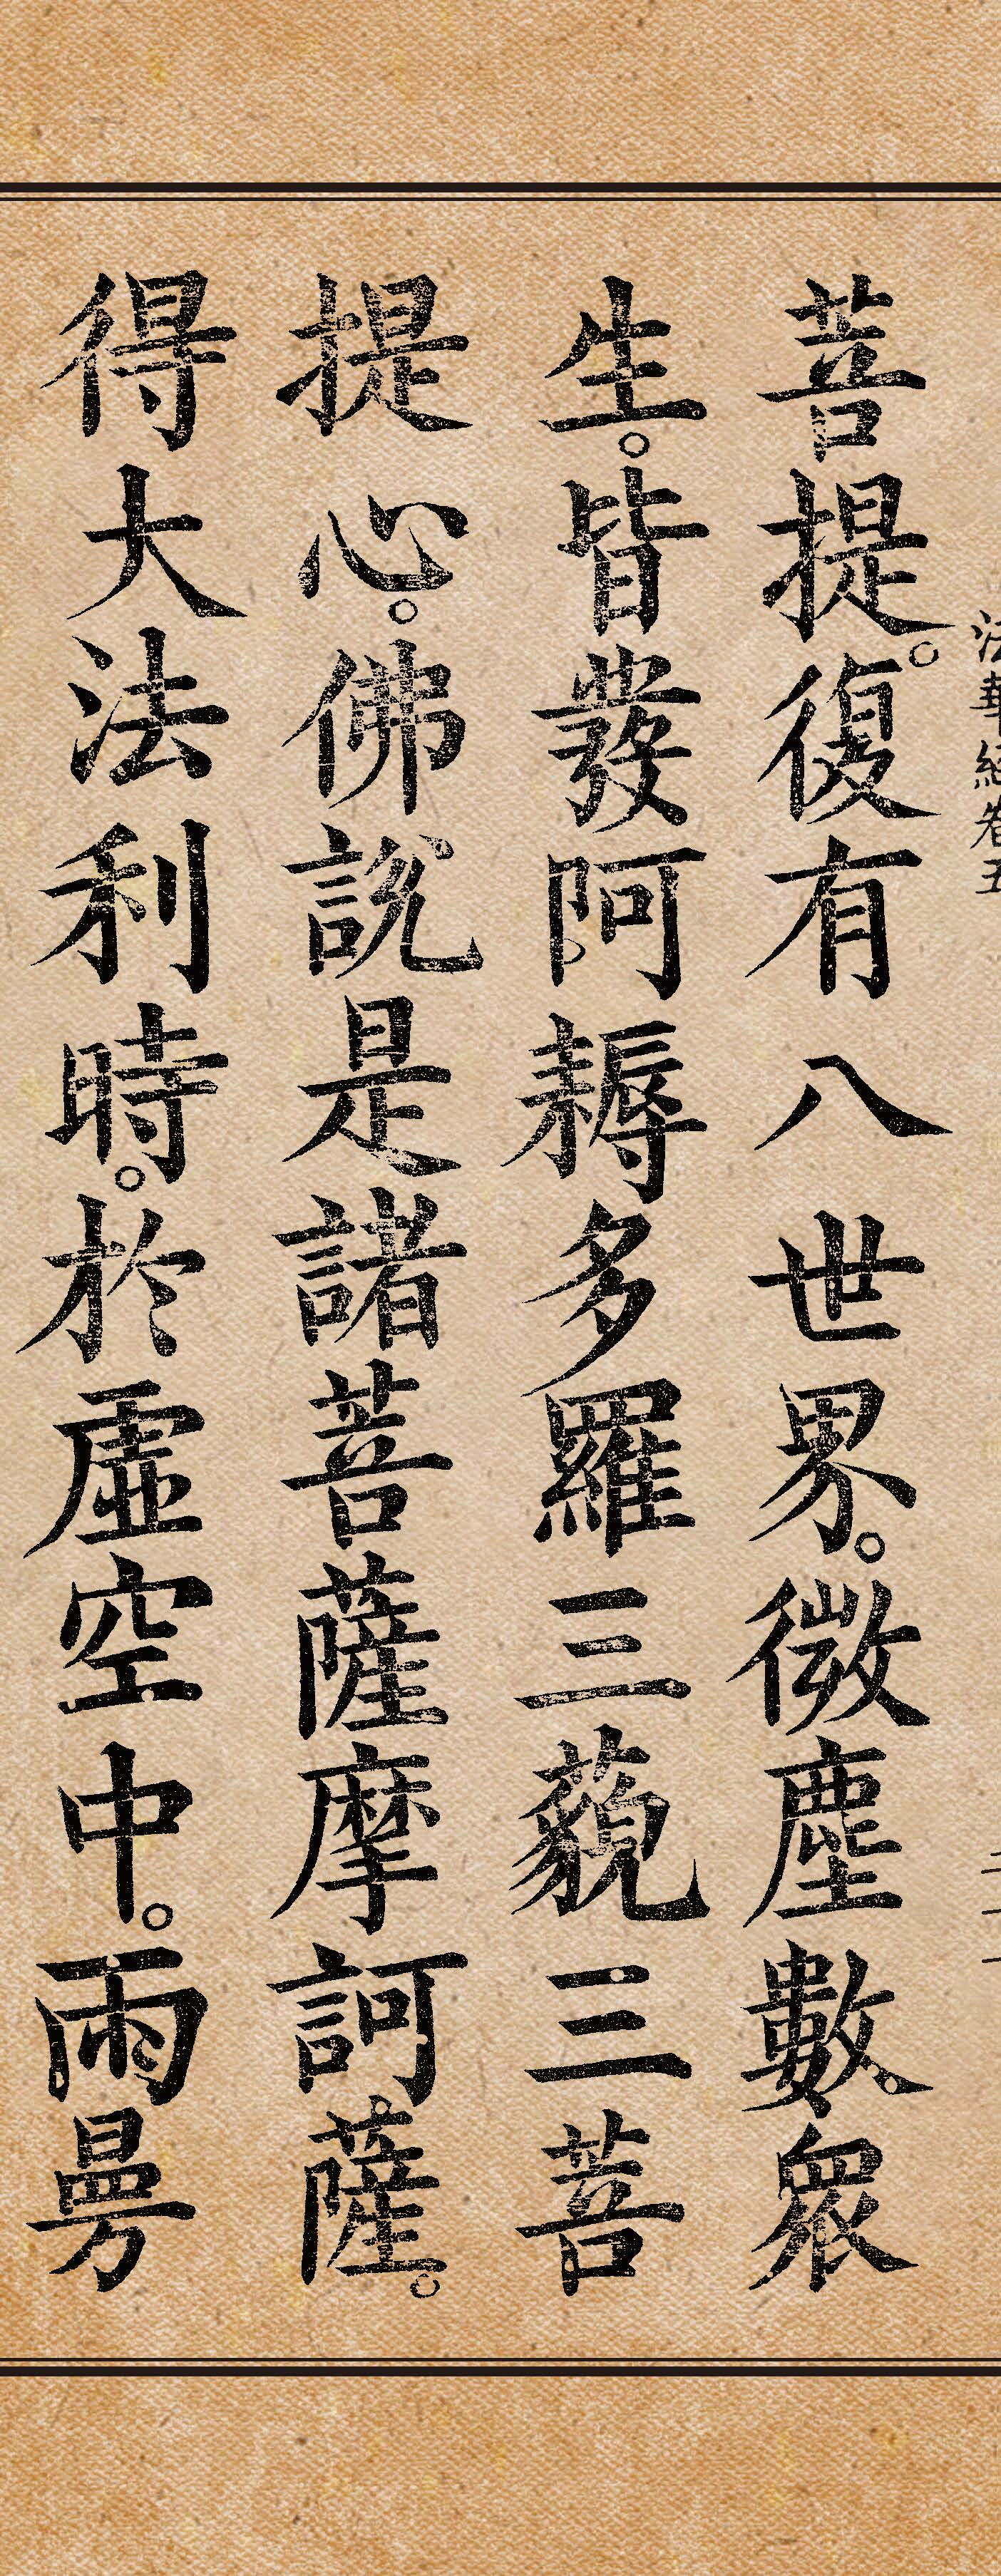 法華經卷五
二十一
菩提。復有八世界。微塵數。眾
生。皆發阿耨多羅三藐三菩
提心。佛說是諸菩薩摩訶薩。
得大法利時。於虛空中。雨曼